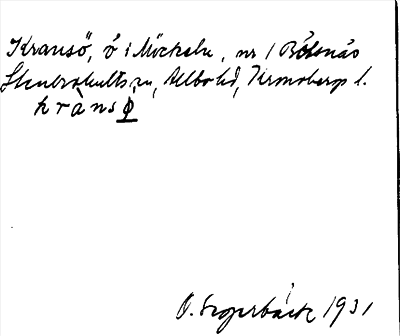 Kransö, ö i Möckeln, nr 1 Båtsnäs
Stenbrohults sn, Allbo hd, Kronobergs l.
krànsö̀
O. Segerbäck 1931